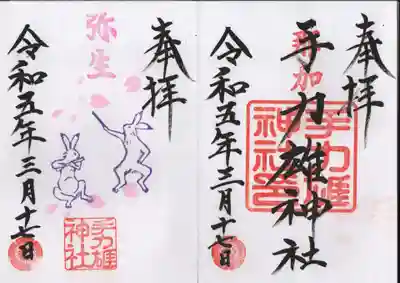 奉拝
各加
手力雄神社
手力雄
神社印
令和五年三月十七日
奉拝
弥生
令和五年三月十七日
手力雄
神社